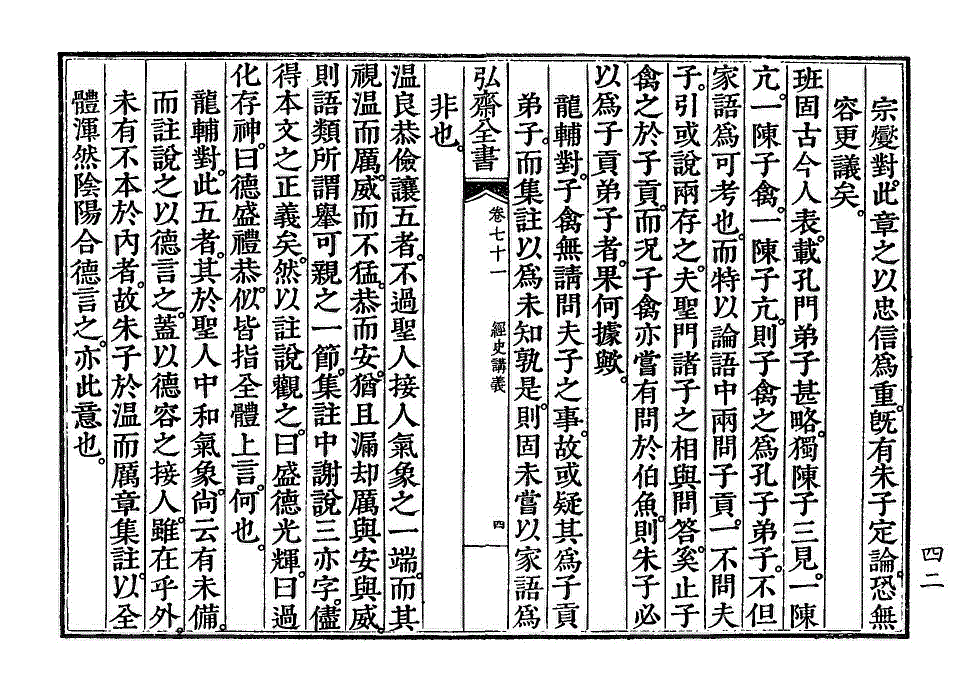 宗燮對。此章之以忠信爲重。旣有朱子定論。恐無
容更議矣。
班固古今人表。載孔門弟子甚略。獨陳子三見。一陳
亢。一陳子禽。一陳子亢。則子禽之爲孔子弟子。不但
家語爲可考也。而特以論語中兩問子貢。一不問夫
子。引或說兩存之。夫聖門諸子之相與問答。奚止子
禽之於子貢。而况子禽亦嘗有問於伯魚。則朱子必
以爲子貢弟子者。果何據歟。
龍輔對。子禽無請問夫子之事。故或疑其爲子貢
弟子。而集註以爲未知孰是。則固未嘗以家語爲
弘齋全書 卷七十一 經史講義 四
非也。
溫良恭儉讓五者。不過聖人接人氣象之一端。而其
視溫而厲。威而不猛。恭而安。猶且漏却厲與安與威。
則語類所謂擧可親之一節。集註中謝說三亦字。儘
得本文之正義矣。然以註說觀之。曰盛德光輝。曰過
化存神。曰德盛禮恭。似皆指全體上言。何也。
龍輔對。此五者。其於聖人中和氣象。尙云有未備。
而註說之以德言之。蓋以德容之接人。雖在乎外。
未有不本於內者。故朱子於溫而厲章集註。以全
體渾然陰陽合德言之。亦此意也。
四二